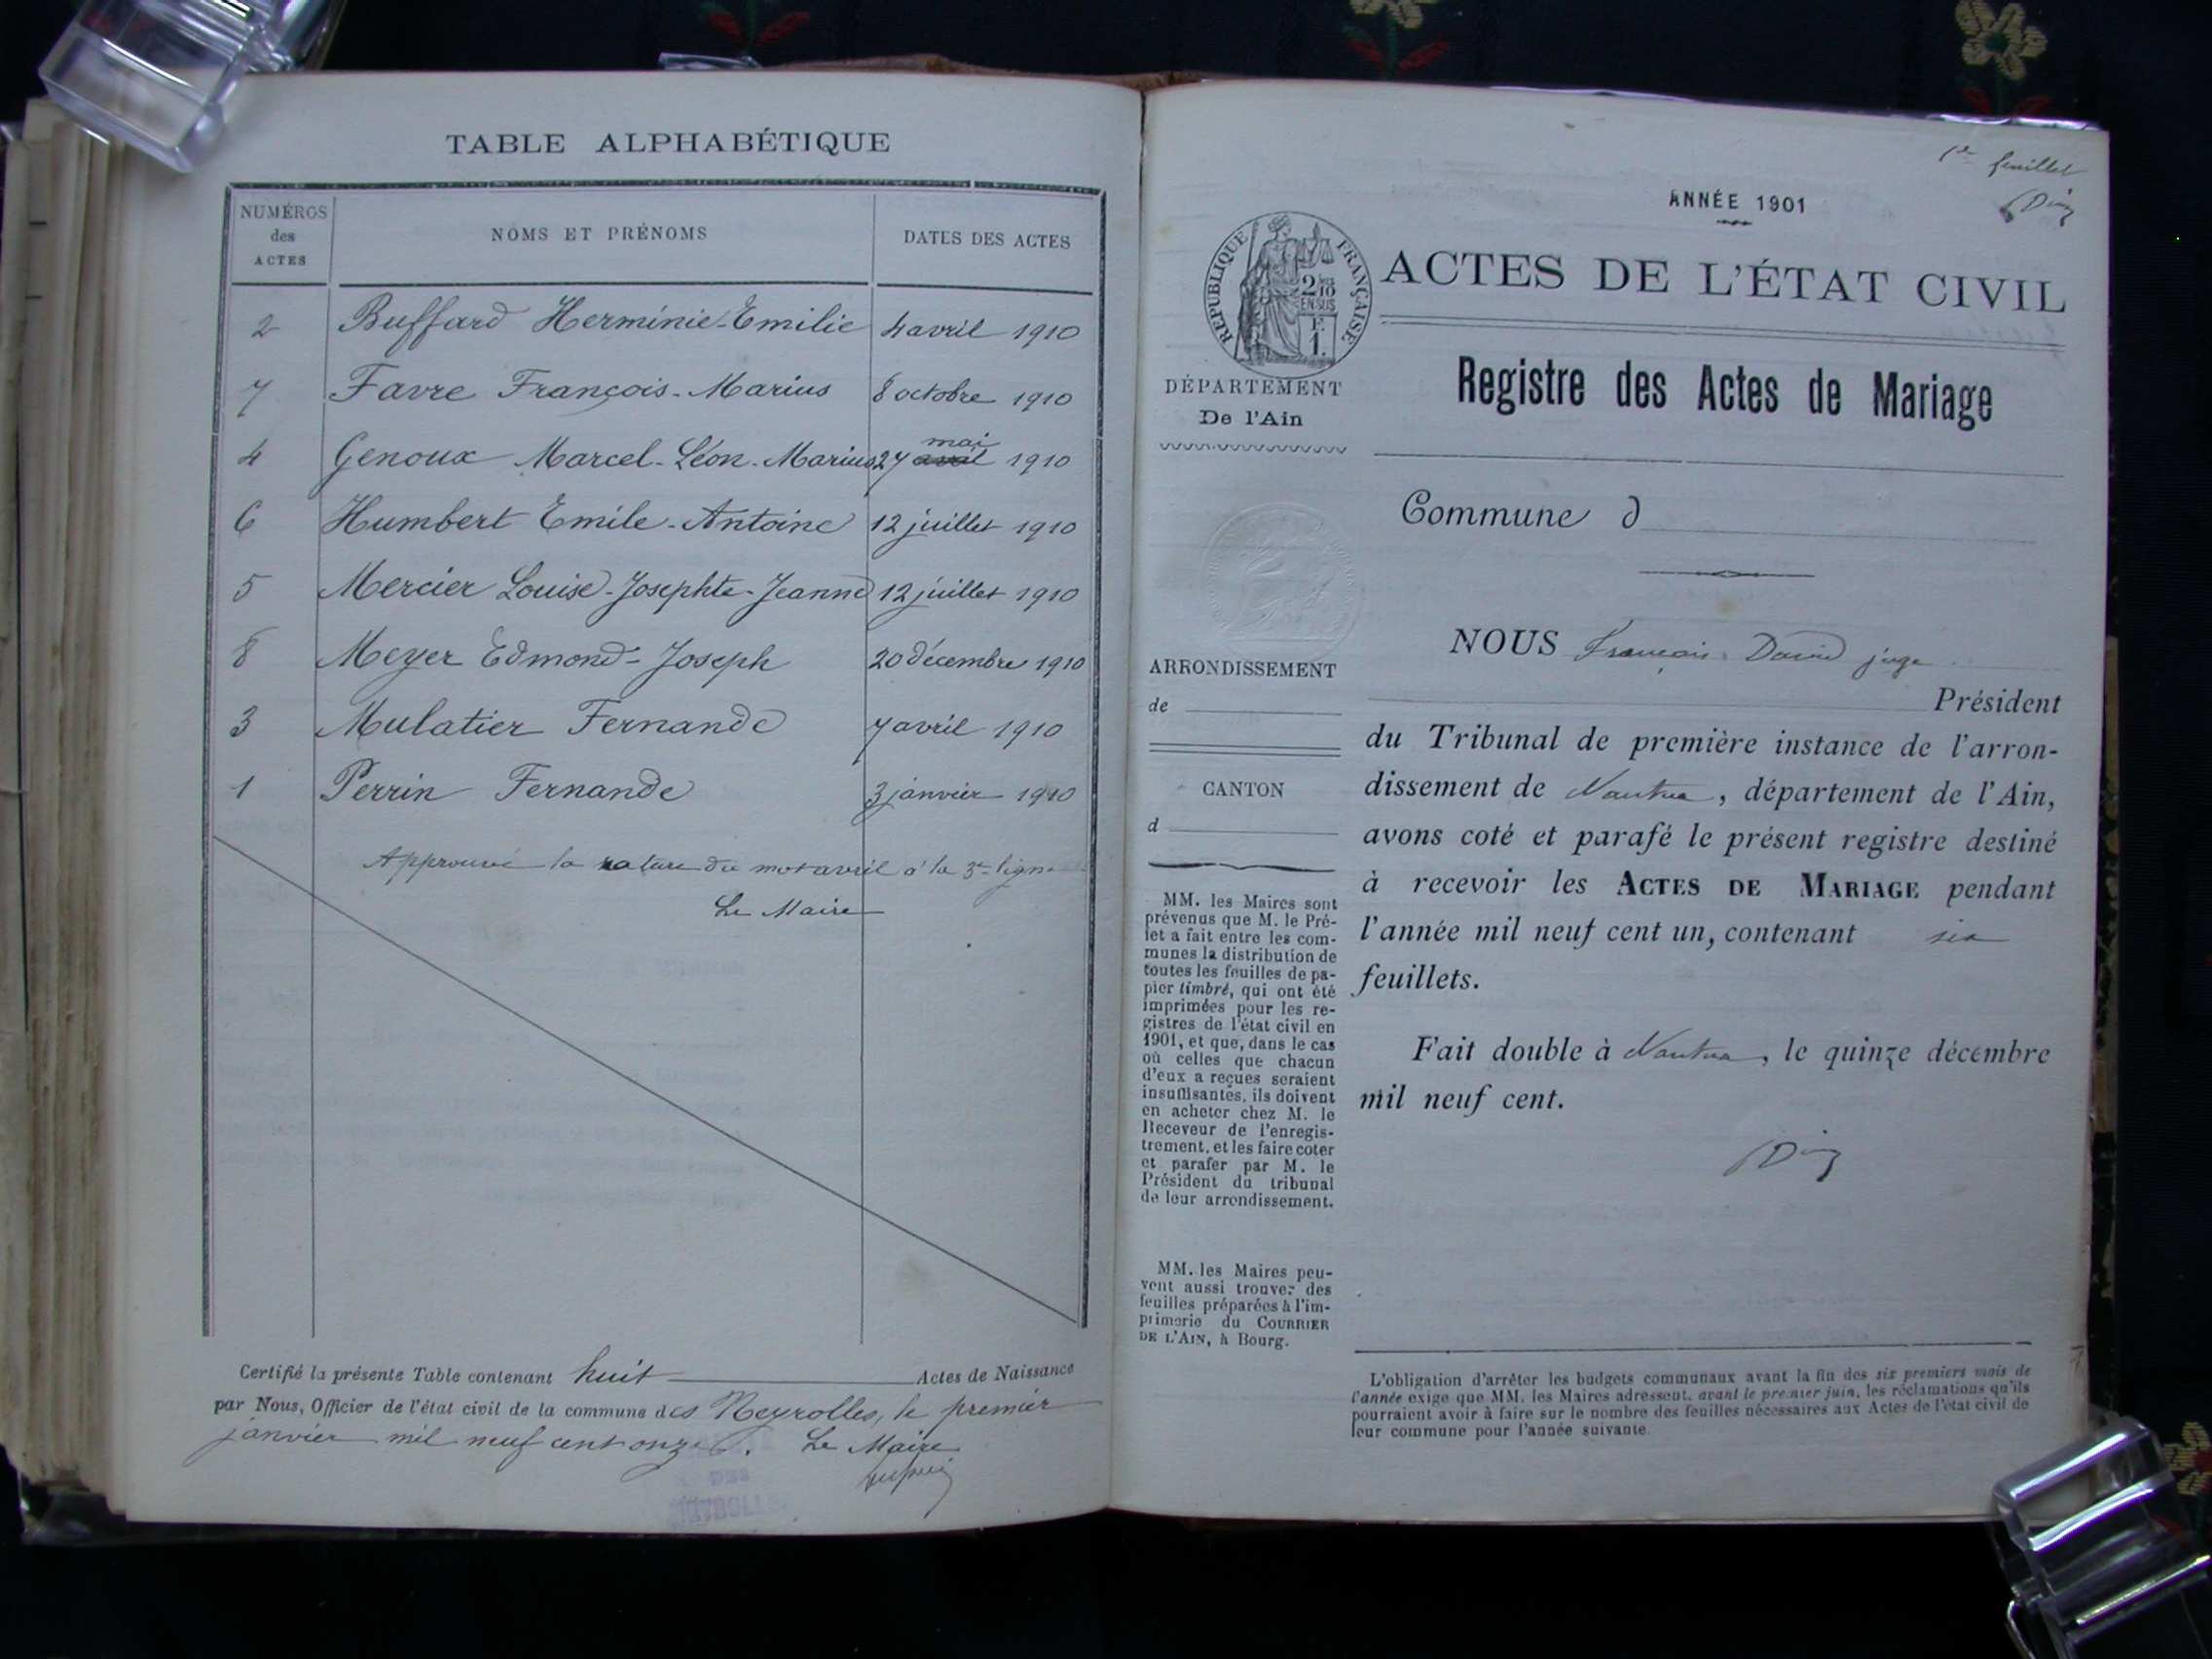 TABLE ALPHABÉTIQUE
NUMÉROS des ACTES NOMS ET PRÉNOMS DATES DES ACTES
2 Buffard Herminie-Emilie 4 avril 1910
7 Favre François-Marius 8 octobre 1910
mai
4 Genoux Marcel-Léon-Marius 27 avril 1910
6 Humbert Emile-Antoine 12 juillet 1910
5 Mercier Louise-Josephte-Jeanne 12 juillet 1910
8 Meyer Edmond-Joseph 20 décembre 1910
3 Mulatier Fernande 7 avril 1910
1 Perrin Fernande 3 janvier 1910
Approuvé la rature du mot avril à la 3e ligne
Le Maire
Certifié la présente Table contenant huit Actes de Naissance
par Nous, Officier de l'état civil de la commune des Neyrolles, le premier
janvier mil neuf cent onze. Le Maire
1er feuillet
ANNÉE 1901
RÉPUBLIQUE FRANÇAISE
2/10
EN SUS
F.
1.
ACTES DE L'ÉTAT CIVIL
DÉPARTEMENT
De l'Ain
Registre des Actes de Mariage
Commune d
ARRONDISSEMENT
de
CANTON
d
MM. les Maires sont
prévenus que M. le Pré-
fet a fait entre les com-
munes la distribution de
toutes les feuilles de pa-
pier timbré, qui ont été
imprimées pour les re-
gistres de l'état civil en
1901, et que, dans le cas
où celles que chacun
d'eux a reçues seraient
insuffisantes, ils doivent
en acheter chez M. le
Receveur de l'enregis-
trement, et les faire coter
et parafer par M. le
Président du tribunal
de leur arrondissement.
MM. les Maires peu-
vent aussi trouver des
feuilles préparées à l'im-
primerie du COURRIER
DE L'AIN, à Bourg.
NOUS François David juge
Président
du Tribunal de première instance de l'arron-
dissement de Nantua, département de l'Ain,
avons coté et parafé le présent registre destiné
à recevoir les ACTES DE MARIAGE pendant
l'année mil neuf cent un, contenant six
feuillets.
Fait double à Nantua, le quinze décembre
mil neuf cent.
L'obligation d'arrêter les budgets communaux avant la fin des six premiers mois de
l'année exige que MM. les Maires adressent, avant le premier juin, les réclamations qu'ils
pourraient avoir à faire sur le nombre des feuilles nécessaires aux Actes de l'état civil de
leur commune pour l'année suivante.